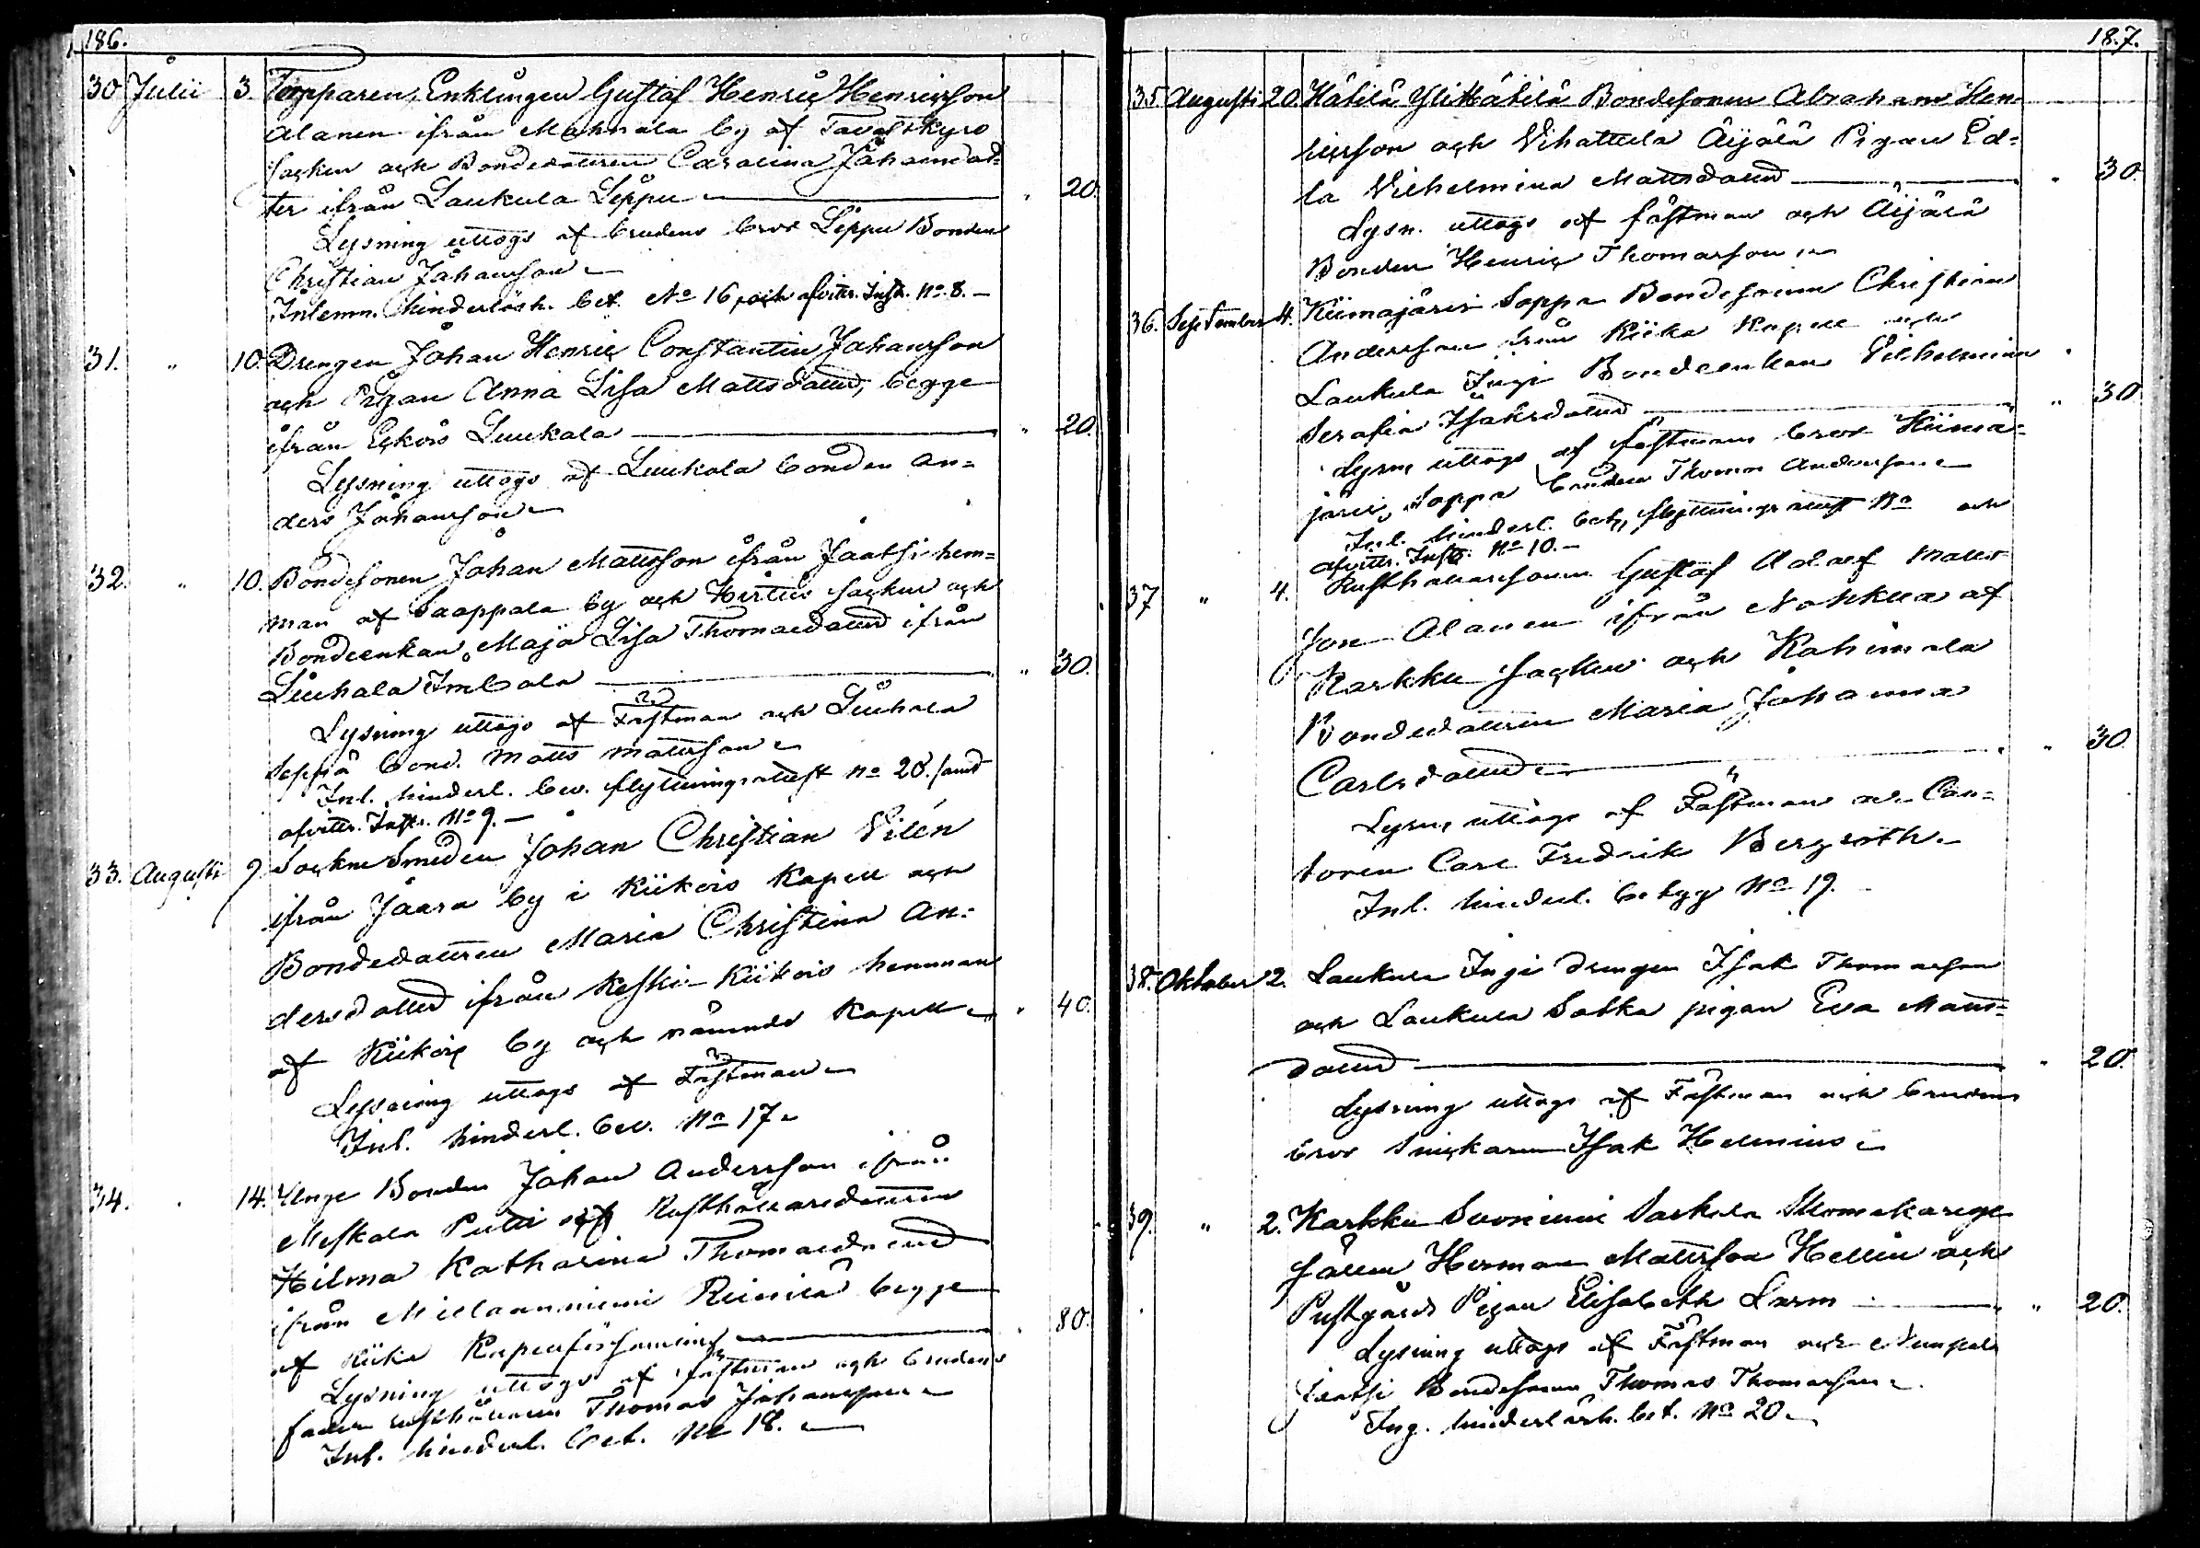 186.
30 Julii 3. Torpparen, Enklingen Gustaf Henric Henricsson
Alanen ifrån Mahnala by af Tavastkyro
Socken och Bondedottren Carolina Johansdot-
ter ifrån Laukula Seppu " 20.
Lysning uttogs af brudens bror Seppu Bonden
Christian Johansson
Inlemn. hinderlösh. bet. No 16, och afvittr. Instr. No 8.
31. " 10. Drengen Johan Henric Constantin Johansson
och Pigan Anna Lisa Mattsdotter, begge
ifrån Luukala " 20.
Lysning uttogs af Luukala bonden An-
ders Johansson
32. " 10. Bondesonen Johan Mattsson ifrån Jaatsi hem-
man af Saappala by och Socken och
Bondeenkan Maja Lisa Thomasdotter ifrån
Liuhala " 30.
Lysning uttogs af Fästman och Liuhala
Seppä bond. Matts Mattsson
Inl. hinderl. bev. flyttningsattest No 28. samt
afvittr. Instr. No 9.
33. Augusti 7. Sockne Smeden Johan Christian Vilén
ifrån Jaara by i Kiikois Kapell och
Bondedottren Maria Christina An-
dersdotter ifrån Keski Kiikois hemman
af Kiikois by och nämnde Kapell " 40.
Lysning uttogs af Fästman
Inl. hinderl. bev. No 17.
34. " 14. Unge Bonden Johan Andersson ifrån
Meskala och Rusthållaredottren
Hilma Katharina Thomasdotter
ifrån Millaanniemi begge
af Kiika Kapellförsamling " 80.
Lysning uttogs af fästman och brudens
fader rusthållaren Thomas Johansson
Inl. hinderl. bet. No 18.
187.
35 Augusti 20. Hätilä Yli Hätilä Bondesonen Abraham Hen-
ricsson och Vihattula Äijälä Pigan Ed-
la Vilhelmina Mattsdotter " 30.
Lysn. uttogs af fästman och Äijälä
Bonden Henric Thomasson
36. September 4. Kiimajärvi Soppa Bondesonen Christian
Andersson från Kiika Kapell och
Laukula Ingi Bondeenkan Vilhelmina
Serafia Isaksdotter " 30
Lysn. uttogs af fästmans bror Kiima-
järvi Soppa bonden Thomas Andersson
Inl. hinderl. bet., flyttningsattest No och
afvittr. Instr. No 10.
37 " 4. Rusthållaresonen Gustaf Adolf Matts
son Alanen ifrån Nohkua af
Karkku Socken och Kahimala
Bondedottren Maria Johanna
Carlsdotter " 30.
Lysn. uttogs af Fästman och Can-
toren Carl Fredrik Bergroth.
Inl. hinderl. betyg No 19.
38. Oktober 2. Laukula Ingi drengen Isak Thomasson
och Laukula Salka pigan Eva Matts-
dotter " 20.
Lysning uttogs af Fästman och brudens
bror Snickaren Isak Helenius
39. " 2. Karkku Suoniemi Skomakarege-
sällen Herman Mattsson Hellin och
Pigan Elisabeth Lurm " 20.
Lysning uttogs af Fästman och
Jaatsi Bondesonen Thomas Thomasson
Ing. hinderlösh. bet. No 20